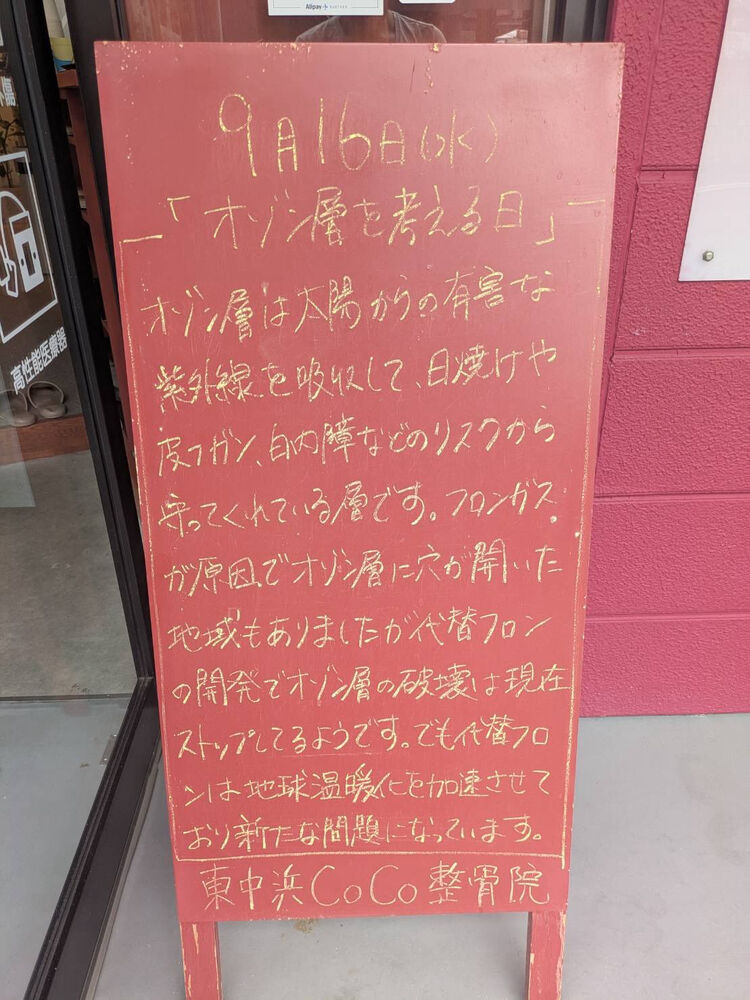 Alipay
9月16日(水)
「オゾン層を考える日」
オゾン層は太陽からの有害な
紫外線を吸収して、日焼けや
皮フガン、白内障などのリスクから
守ってくれている層です。フロンガス
が原因でオゾン層に穴が開いた
地域もありましたが代替フロン
の開発でオゾン層の破壊は現在
ストップしてるようです。でも代替フロ
ンは地球温暖化を加速させて
おり新たな問題になっています。
東中浜CoCo整骨院
高性能医療器